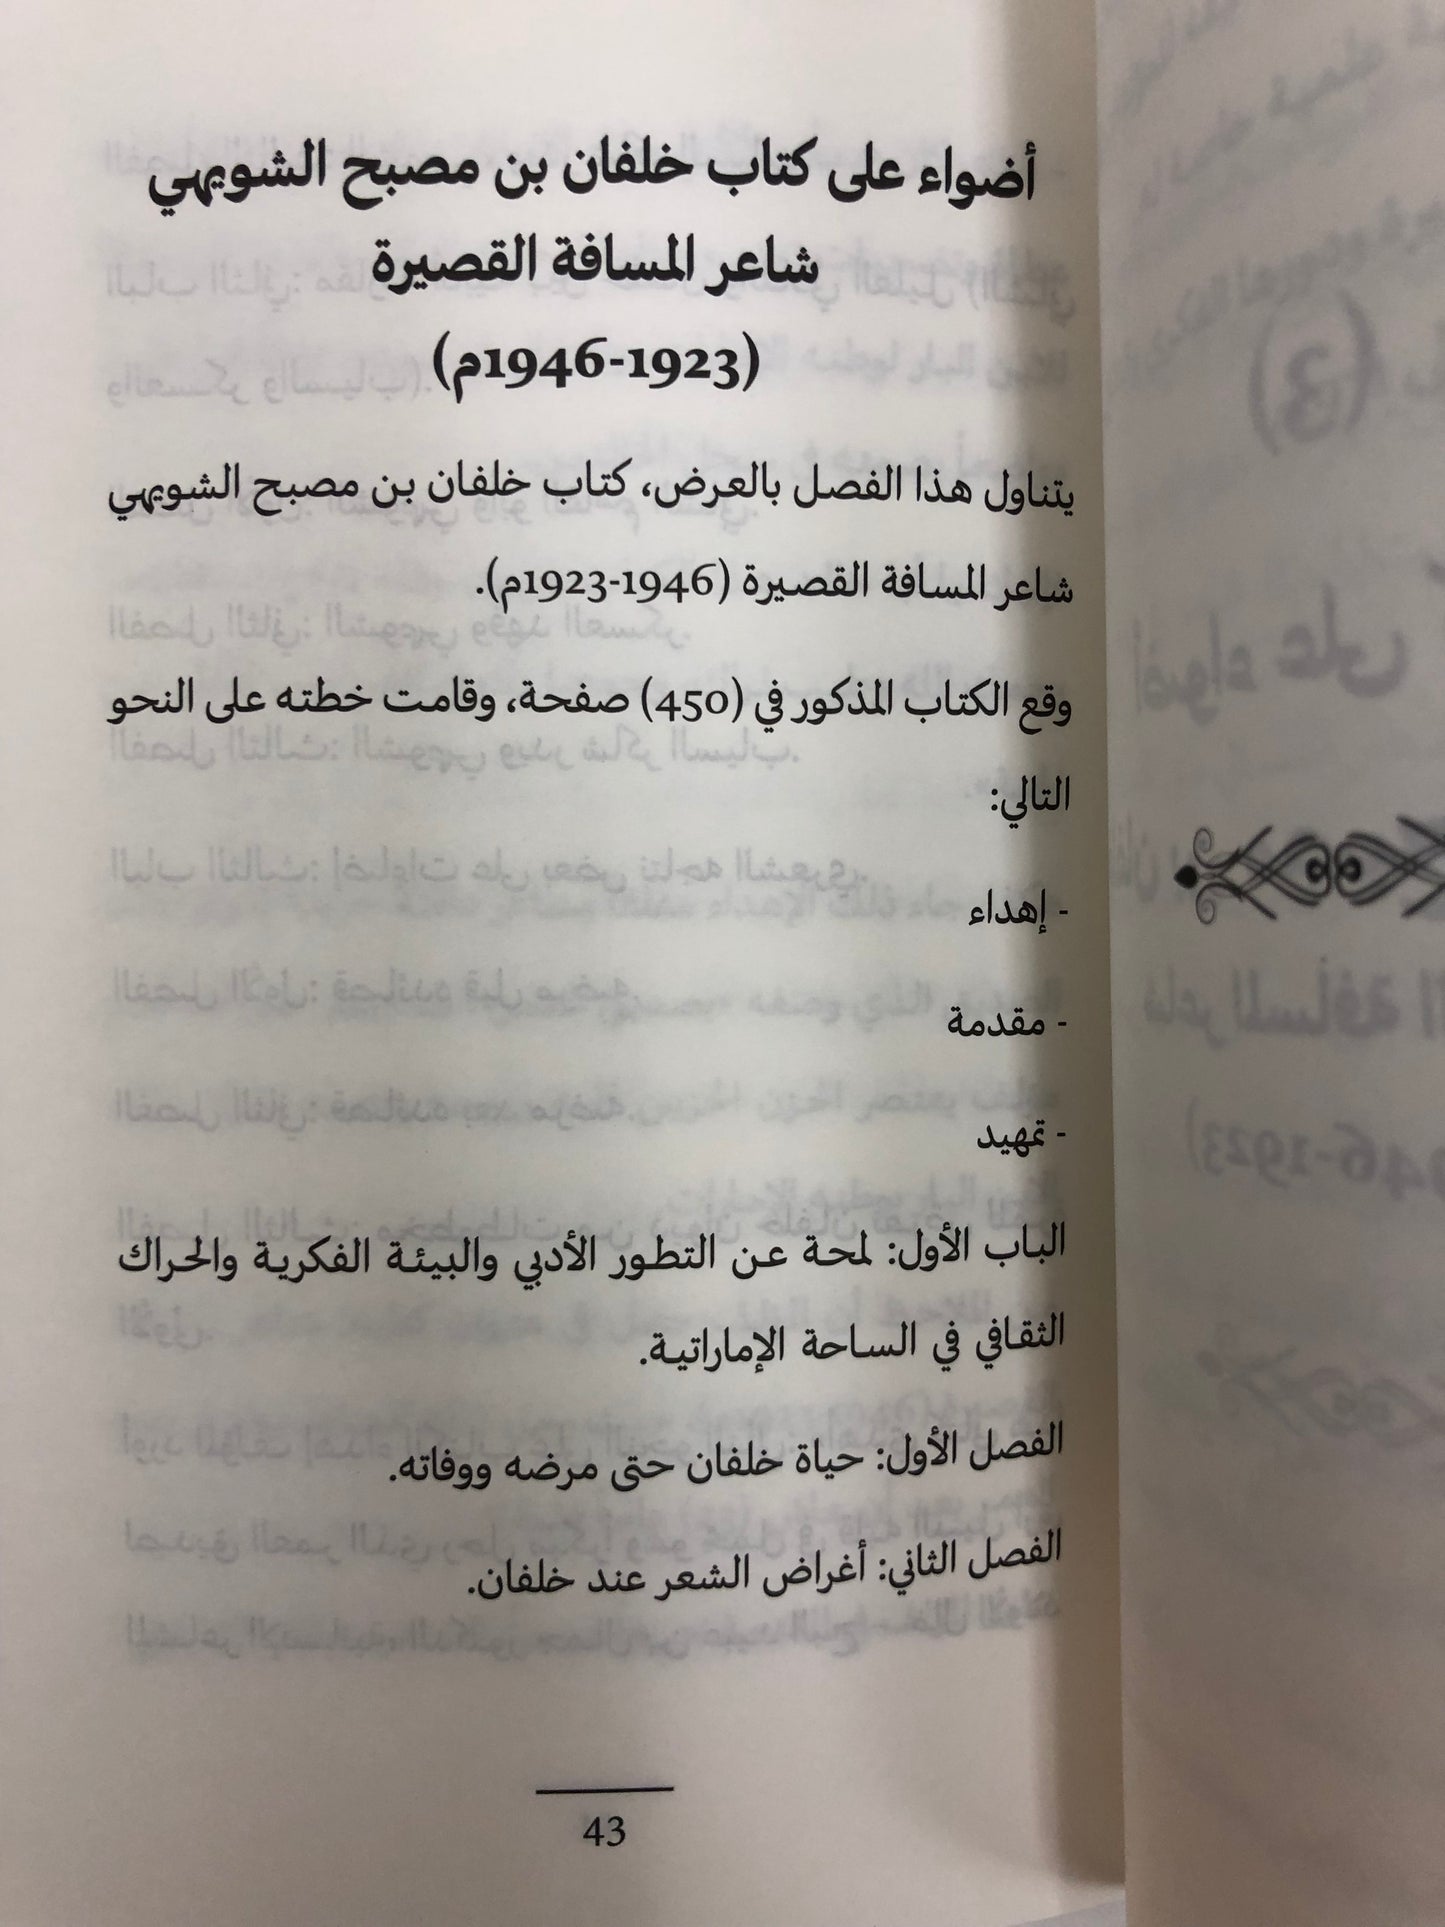 أضواء على كتاب خلفان بن مصبح الشويهي
شاعر المسافة القصيرة
(1923-1946م)
يتناول هذا الفصل بالعرض، كتاب خلفان بن مصبح الشويهي
شاعر المسافة القصيرة (1946-1923م).
وقع الكتاب المذكور في (450) صفحة، وقامت خطته على النحو
التالي:
- إهداء
- مقدمة
- تمهيد
الباب الأول: لمحة عن التطور الأدبي والبيئة الفكرية والحراك
الثقافي في الساحة الإماراتية.
الفصل الأول: حياة خلفان حتى مرضه ووفاته.
الفصل الثاني: أغراض الشعر عند خلفان.
43